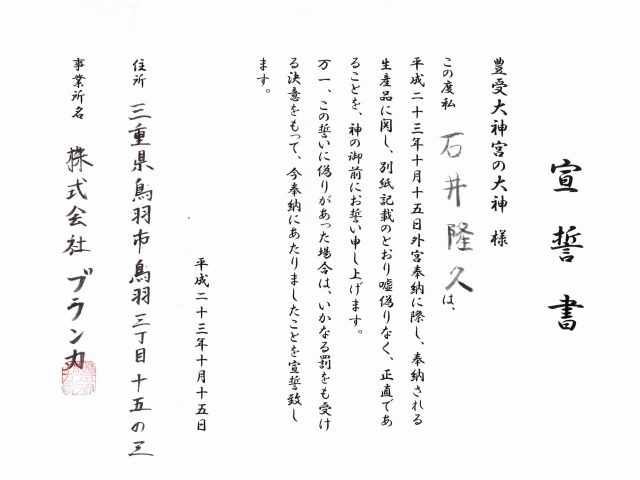 宣誓書
豊受大神宮の大神 様
この度私 石井隆久は、
平成二十三年十月十五日外宮奉納に際し、奉納される
生産品に関し、別紙記載のとおり嘘偽りなく、正直であ
ることを、神の御前にお誓い申し上げます。
万一、この誓いに偽りがあった場合は、いかなる罰をも受け
る決意をもって、今奉納にあたりましたことを宣誓致し
ます。
平成二十三年十月十五日
住所 三重県鳥羽市鳥羽三丁目十五の三
事業所名 株式会社 ブランカ